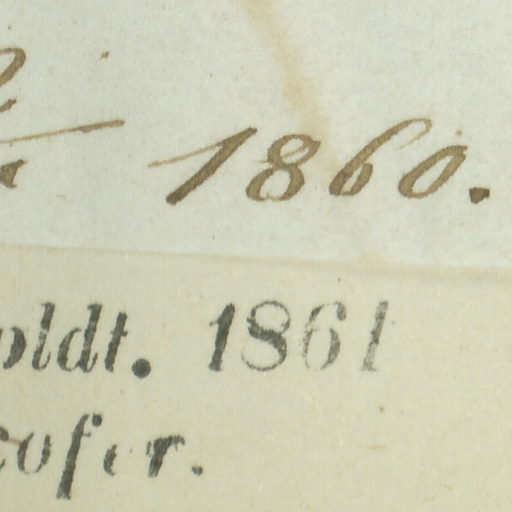 1860.
oldt. 1861
cofer.